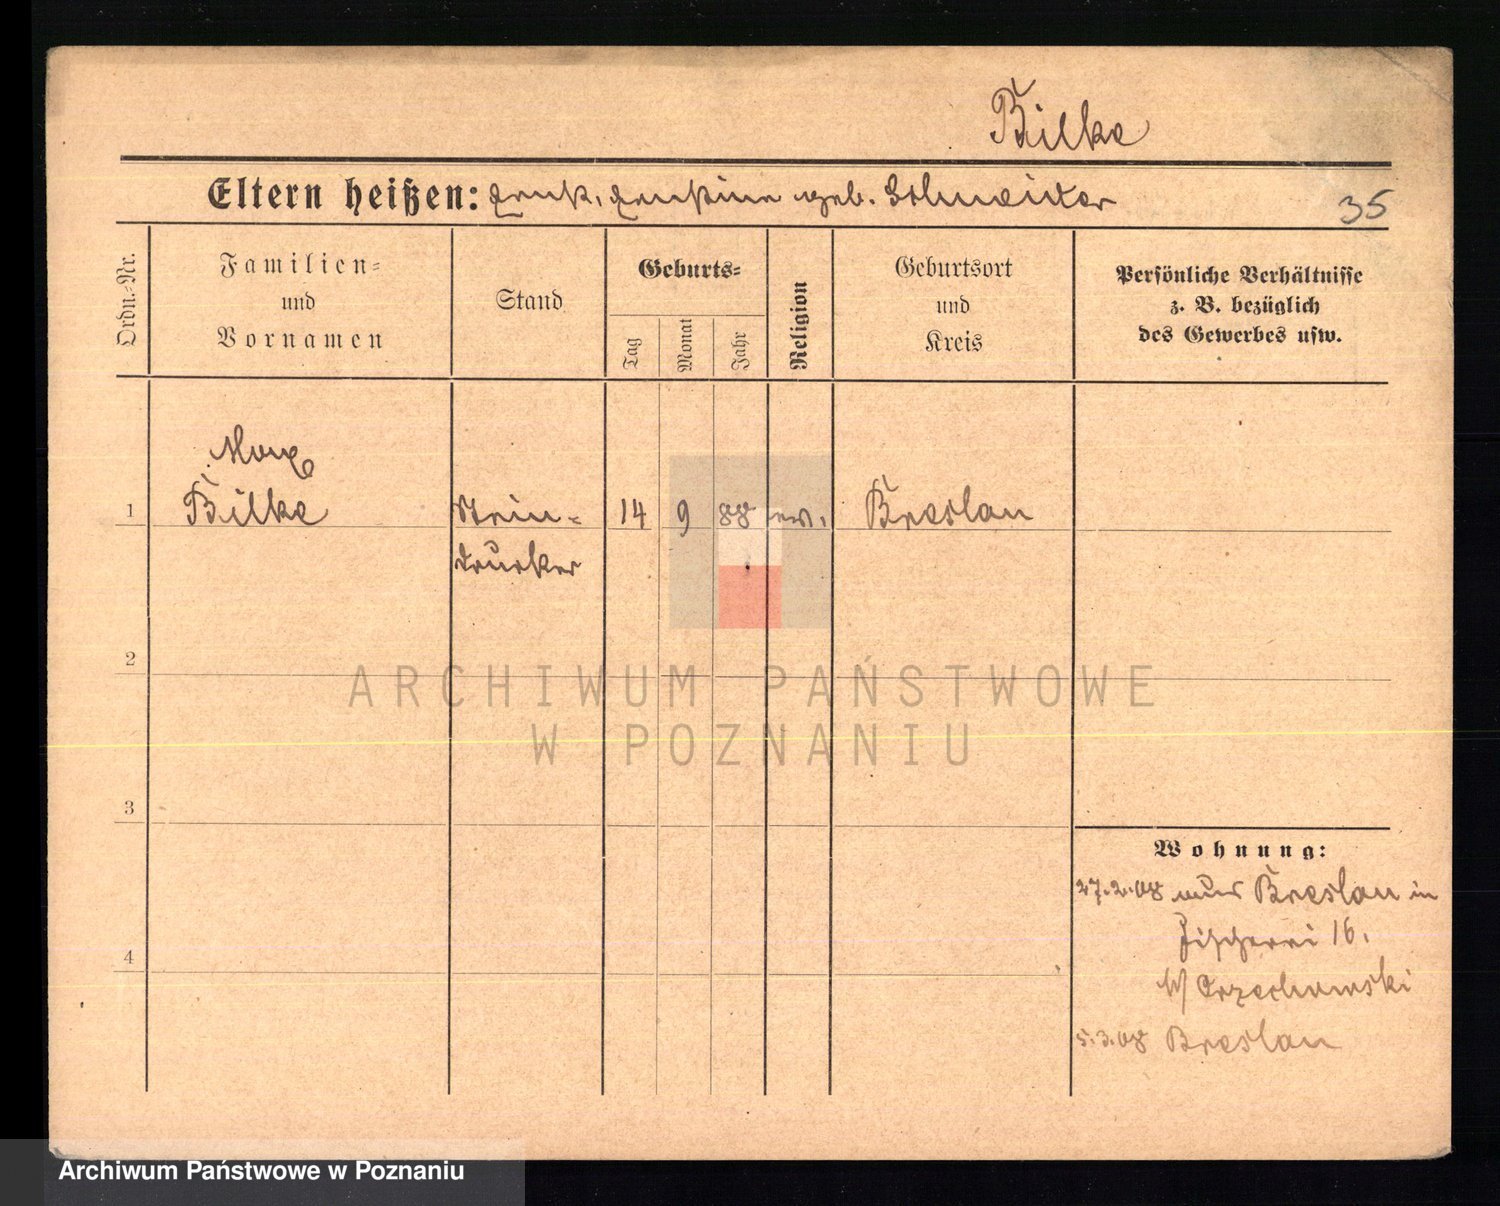 Bilke
Eltern heißen: Ernst, Ernstine geb. Schneider
35
Ordn.-Nr.
Familien-
und
Vornamen
Stand
Geburts-
Tag
Monat
Jahr
Religion
Geburtsort
und
Kreis
Persönliche Verhältnisse
z. B. bezüglich
des Gewerbes usw.
Max
1 Bilke Stein- 14 9 88 ev. Breslau
drucker
2
ARCHIWUM PAŃSTWOWE
W POZNANIU
3
Wohnung:
27.2.08 Breslau in
Fischerei 16.
b/ Orzechowski
4
5.3.08 Breslau
Archiwum Państwowe w Poznaniu